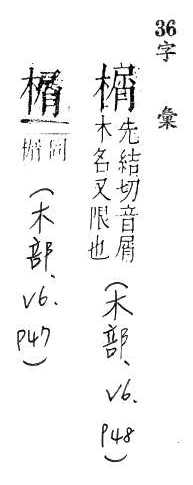 36
字彙
榍
先結切音屑
木名又限也
(木部、v6. P48)
同
榍
(木部、v6. P47)